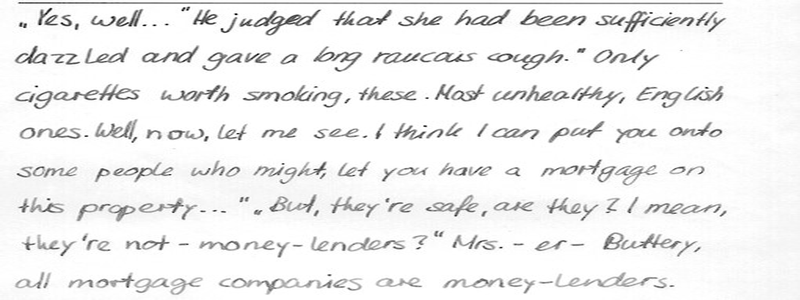 „Yes, well... "He judged that she had been sufficiently
dazzled and gave a long raucous cough." Only
cigarettes worth smoking, these. Most unhealthy, English
ones. Well, now, let me see. I think I can put you onto
some people who might, let you have a mortgage on
this property... " „But, they're safe, are they? I mean,
they're not - money-lenders?" Mrs. - er - Buttery,
all mortgage companies are money-lenders.